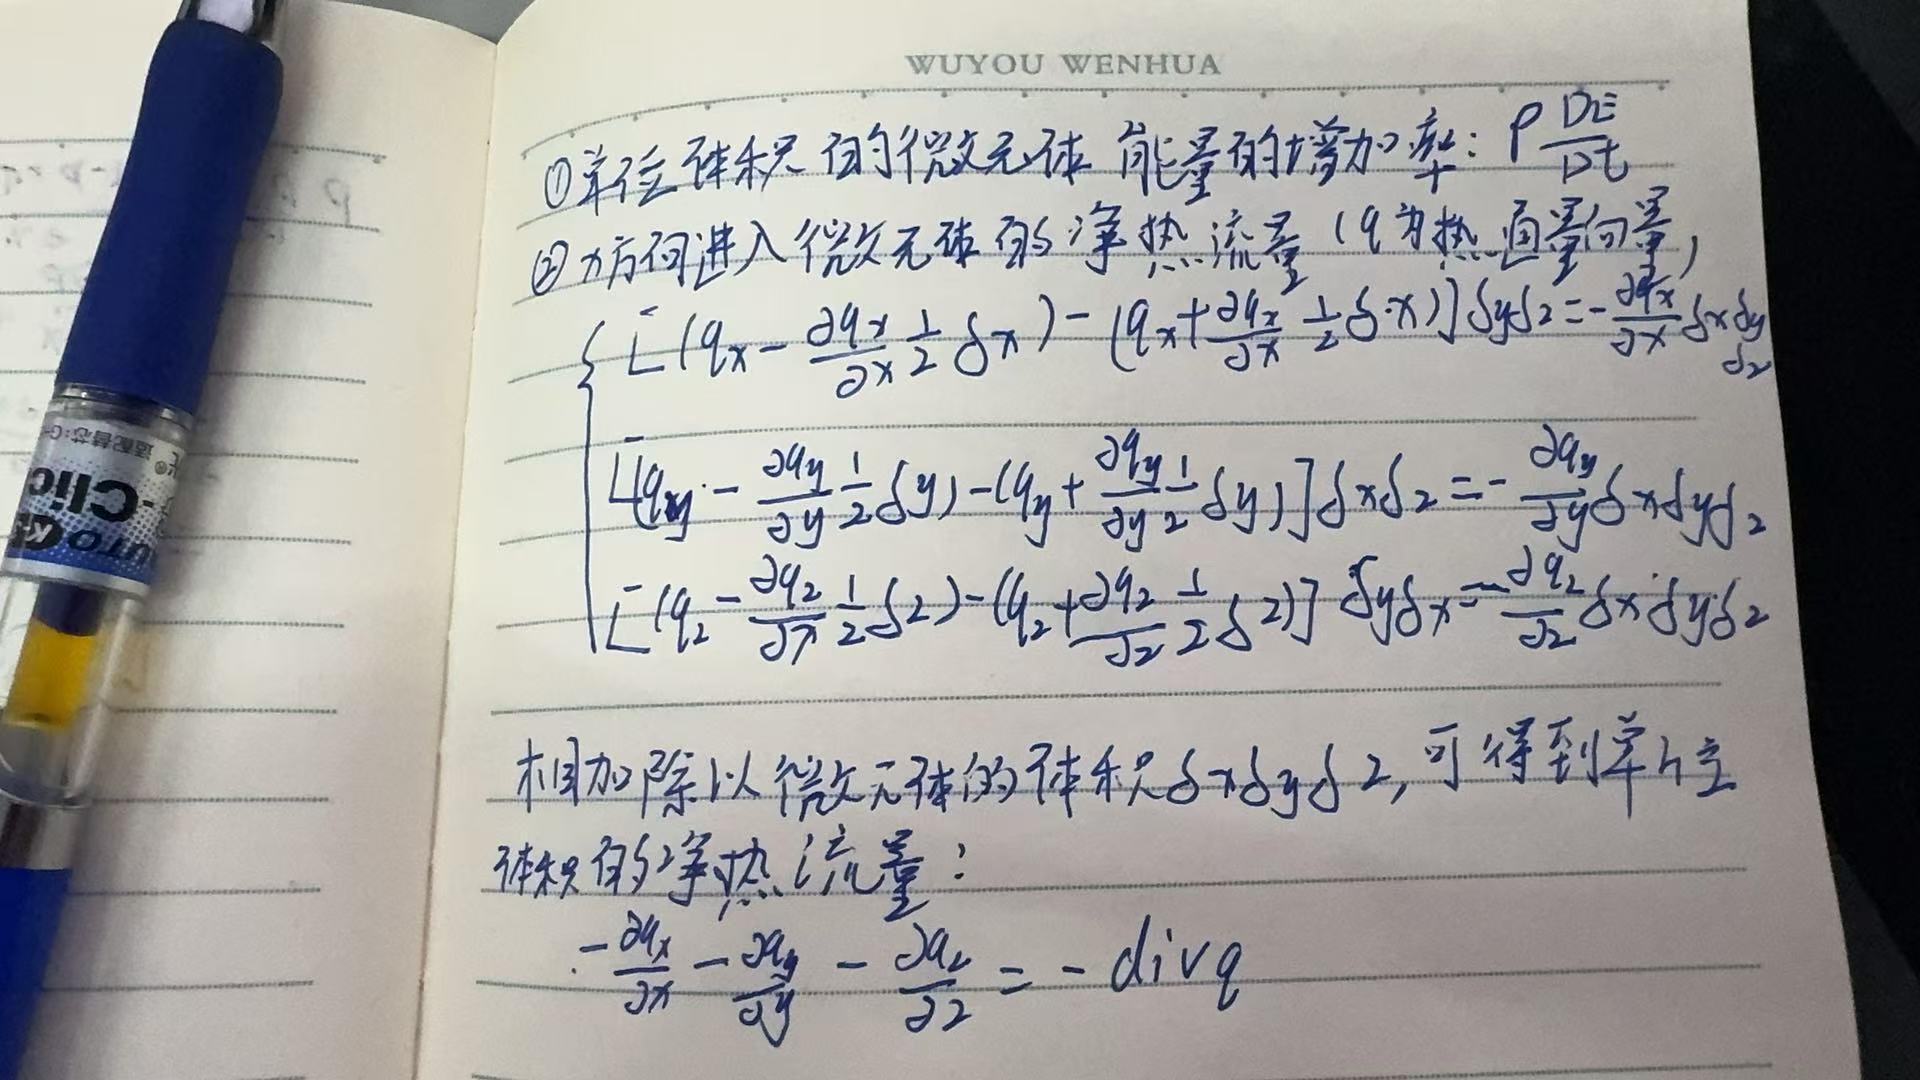 WUYOU WENHUA
①单位体积的微元体能量的增加率: ρ DE/Dt
②x方向进入微元体的净热流量 (q为热通量向量)
[(qx - ∂qx/∂x 1/2 δx) - (qx + ∂qx/∂x 1/2 δx)] δyδz = - ∂qx/∂x δxδyδz
[(qy - ∂qy/∂y 1/2 δy) - (qy + ∂qy/∂y 1/2 δy)] δxδz = - ∂qy/∂y δxδyδz
[(qz - ∂qz/∂x 1/2 δz) - (qz + ∂qz/∂z 1/2 δz)] δyδx = - ∂qz/∂z δxδyδz
相加除以微元体的体积δxδyδz, 可得到单位
体积的净热流量:
- ∂qx/∂x - ∂qy/∂y - ∂qz/∂z = - div q
-Clic